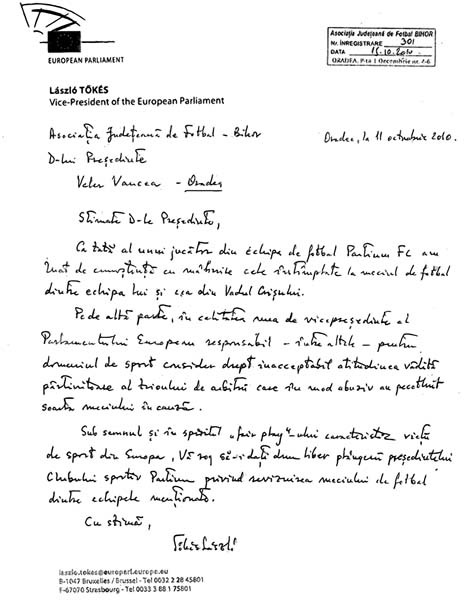 EUROPEAN PARLIAMENT
Asociaţia Judeţeană de Fotbal BIHOR
Nr. ÎNREGISTRARE 301
DATA 15.10.2010
ORADEA, P-ţa 1 Decembrie nr. 4-6
László TŐKÉS
Vice-President of the European Parliament
Asociaţia Judeţeană de Fotbal - Bihor
Oradea, la 11 octombrie 2010.
D-lui Preşedinte
Valer Vancea - Oradea
Stimate D-le Preşedinte,
Ca tată al unui jucător din echipa de fotbal Partium FC am
luat de cunoştinţă cu mâhnire cele întâmplate la meciul de fotbal
dintre echipa lui şi cea din Vadul Crişului.
Pe de altă parte, în calitatea mea de vicepreşedinte al
Parlamentului European responsabil - între altele - pentru
domeniul de sport consider drept inacceptabil atitudinea vădită
părtinitoare al trioului de arbitri care în mod abuziv au pecetluit
soarta meciului în cauză.
Sub semnul şi în spiritul „fair play"-ului caracteristic vieţii
de sport din Europa, Vă rog să-i daţi drum liber plângerii preşedintelui
Clubului sportiv Partium privind revizuirea meciului de fotbal
dintre echipele menţionate.
Cu stimă,
Tőkés László
laszlo.tokes@europarl.europa.eu
B-1047 Bruxelles / Brussel - Tel 0032 2 28 45801
F-67070 Strasbourg - Tel 0033 3 88 1 75801